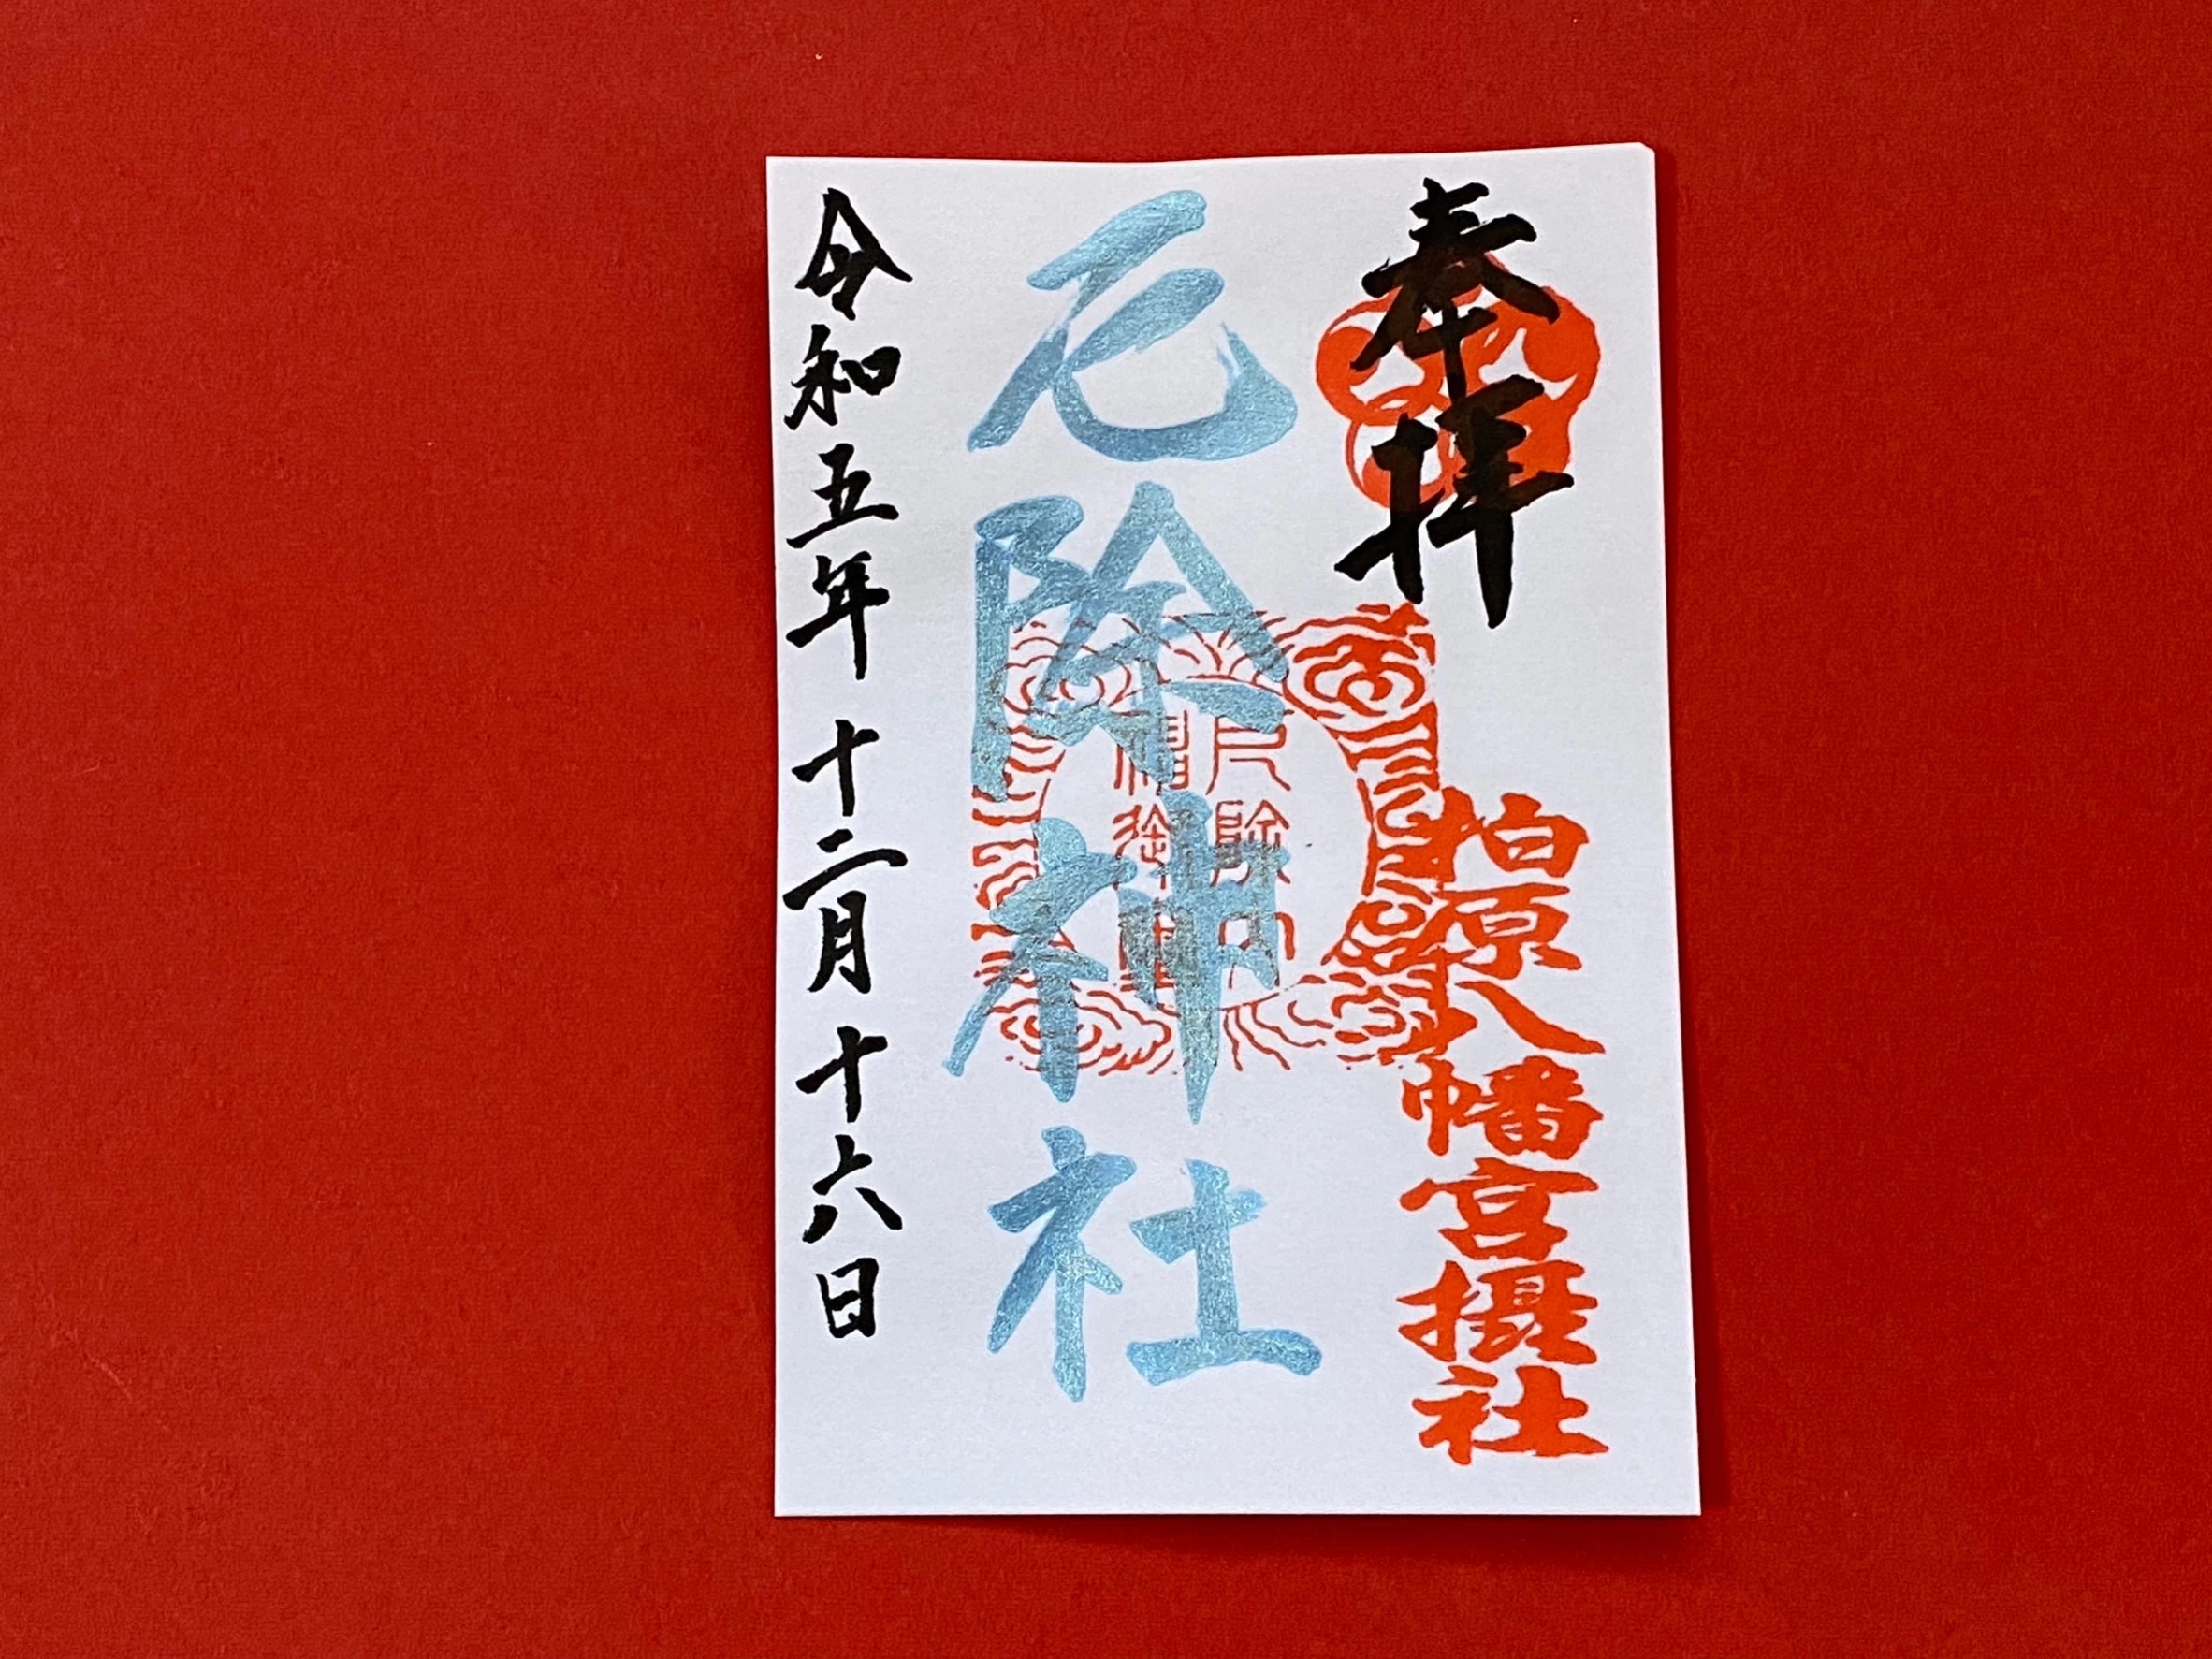 奉拝
柏原八幡宮摂社
厄除神社
令和五年十二月十六日